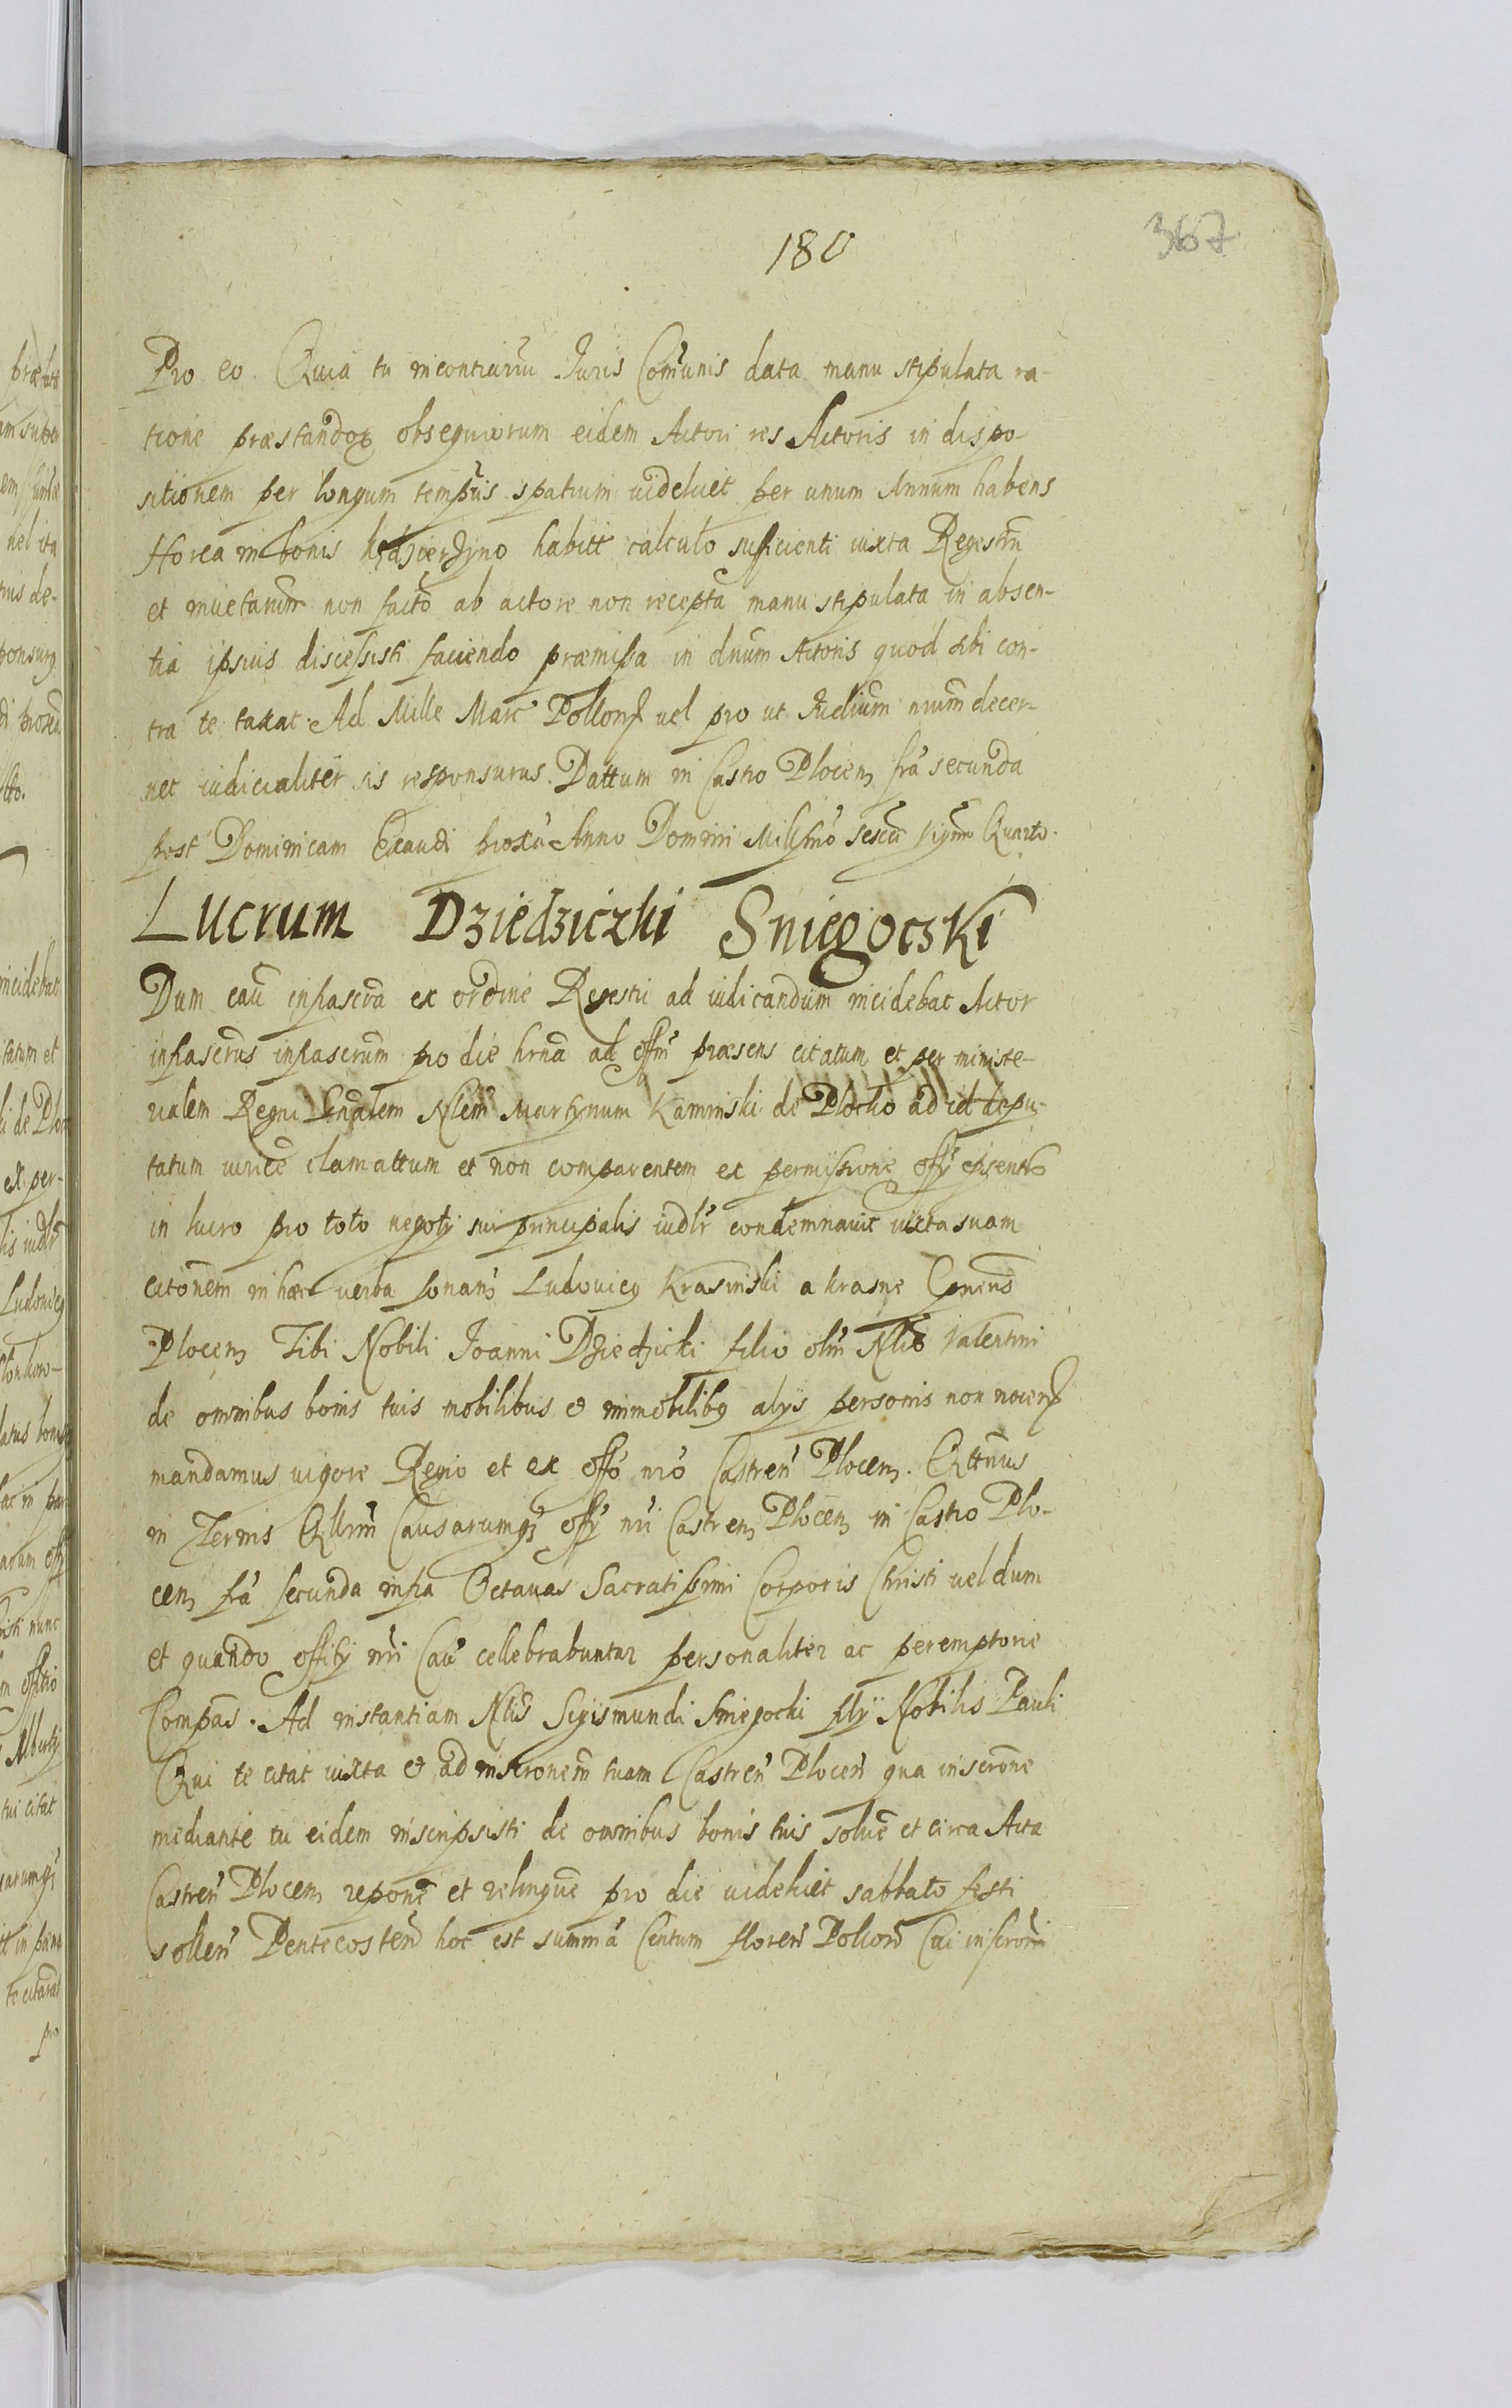 180
367
Pro eo Quia tu incontrariũ Juris Com̃unis data manu stipulata ra-
tione præstandoꝝ obsequiorum eidem Actori res Actoris in dispo-
sitionem per longum tempus spatium videlicet per unum Annum habens
Horea in bonis habitt calculo sufficienti iuxta Regestrũ
et non factõ ab actore non recepta manu stipulata in absen-
tia ipsius discessisti faciendo præmissa in dnũm Actoris quod sibi con-
tra te taxat. Ad Mille Marc Pollon̨ vel pro ut Judiũm nrũm decer-
net iudicialiter sis responsurus. Dattum in Castro Plocen̨ frã secunda
post Dominicam Exaudi proxã Anno Domini Millesmõ sescẽ vigmo Quarto.
Lucrum Dziedziczki Sniegoczki
Dum cau᷈ infrascrã ex ordine Regestri ad iudicandum incidebat Actor
infrascrũs infrascrũm pro die hrnã ad off̃m præsens citatum et per ministe-
rialem Regni Gnãlem Nlẽm Martynum Kaminski de Plocko ad id depu-
tatum iurice clamattum et non comparentem ex permissione offy̋ episentis
in lucro pro toto negoty sui principalis iudlr̃ condemnavit iuxta suam
citonẽm in hæc verba sonan̄ Ludovicꝰ Krasinski a krasne Ca
Plocen̨ Tibi Nobili Joanni Dziedzicki filio olm̃ Nlis Valentini
de omnibus bonis tuis mobilibus et immobilibꝰ alys personis non nocen̨
mandamus vigore Regio et ex offõ nrõ Castren̄ Plocen̨. Qttnus
in Termis Qllrm̃ Causarumqꝫ offy̋ nri Castren̨ Plocen̨ in Castro Plo-
cen̨ frã secunda infra Octavas Sacratissimi Corporis Christi vel dum
et quando offity nri Cau᷈ cellebrabuntur personaliter ac peremptorie
Compãs. Ad instantiam Nlis Sigismundi Sniegocki fily Nobilis Pauli
Qui te citat iuxta et ad inscronẽm tuam Castren̄ Plocen̄ qua inscronẽ
mediante tu eidem inscripsisti de omnibus bonis tuis solvẽ et circa Acta
Castren̄ Plocen̨ reponẽ et relinquẽ pro die videlicet sabbato festi
sollen̄ Pentecosten̄ hoc est summã Centum floren̄ Polion̄ Cui inscronĩ